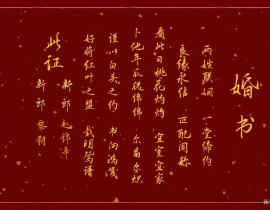 婚书
两姓联姻 一堂缔约
良缘永结 匹配同称
看此日桃花灼灼 宜室宜家
卜他年瓜瓞绵绵 尔昌尔炽
谨以白头之约 书向鸿笺
好将红叶之盟 载明鸳谱
此证
新郎
新郎